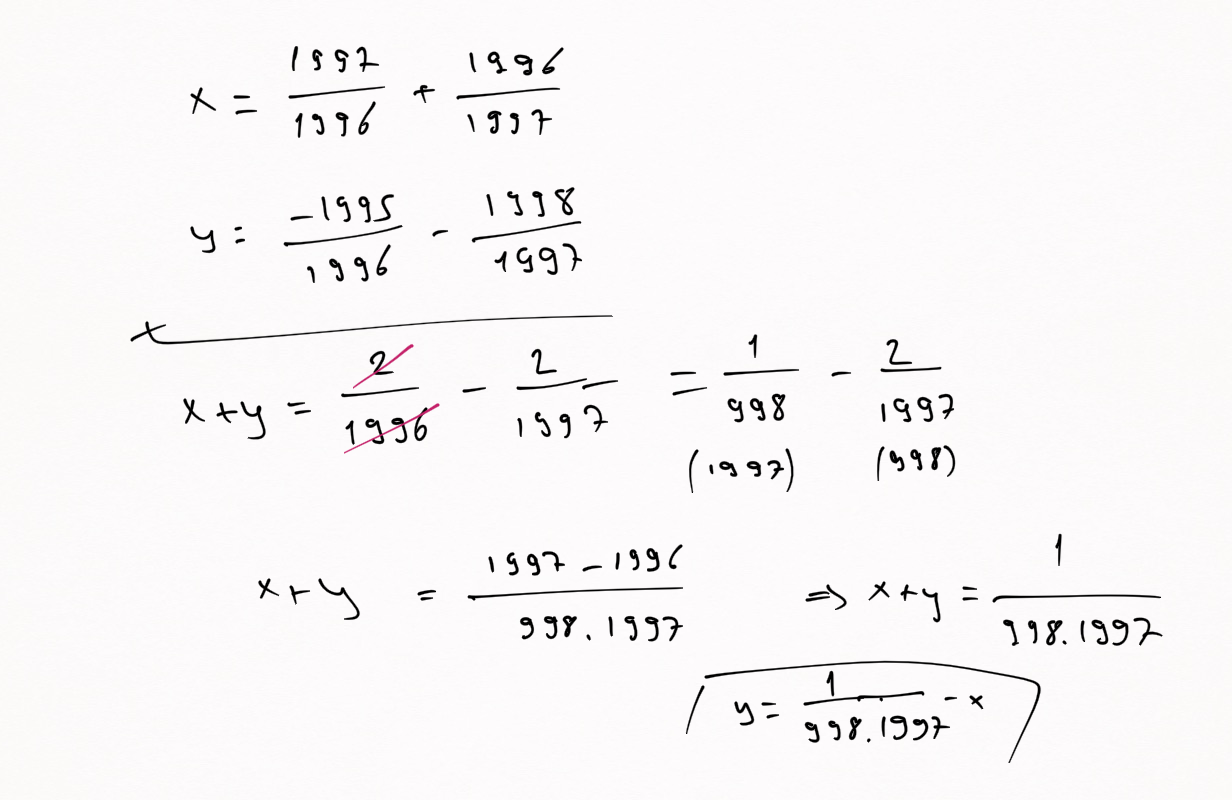 x = 1997/1996 + 1996/1997
y = -1995/1996 - 1998/1997
+
x+y = 2/1996 - 2/1997 = 1/998 - 2/1997
(1997) (998)
x+y = 1997-1996/998.1997 ⇒ x+y = 1/998.1997
y = 1/998.1997 - x